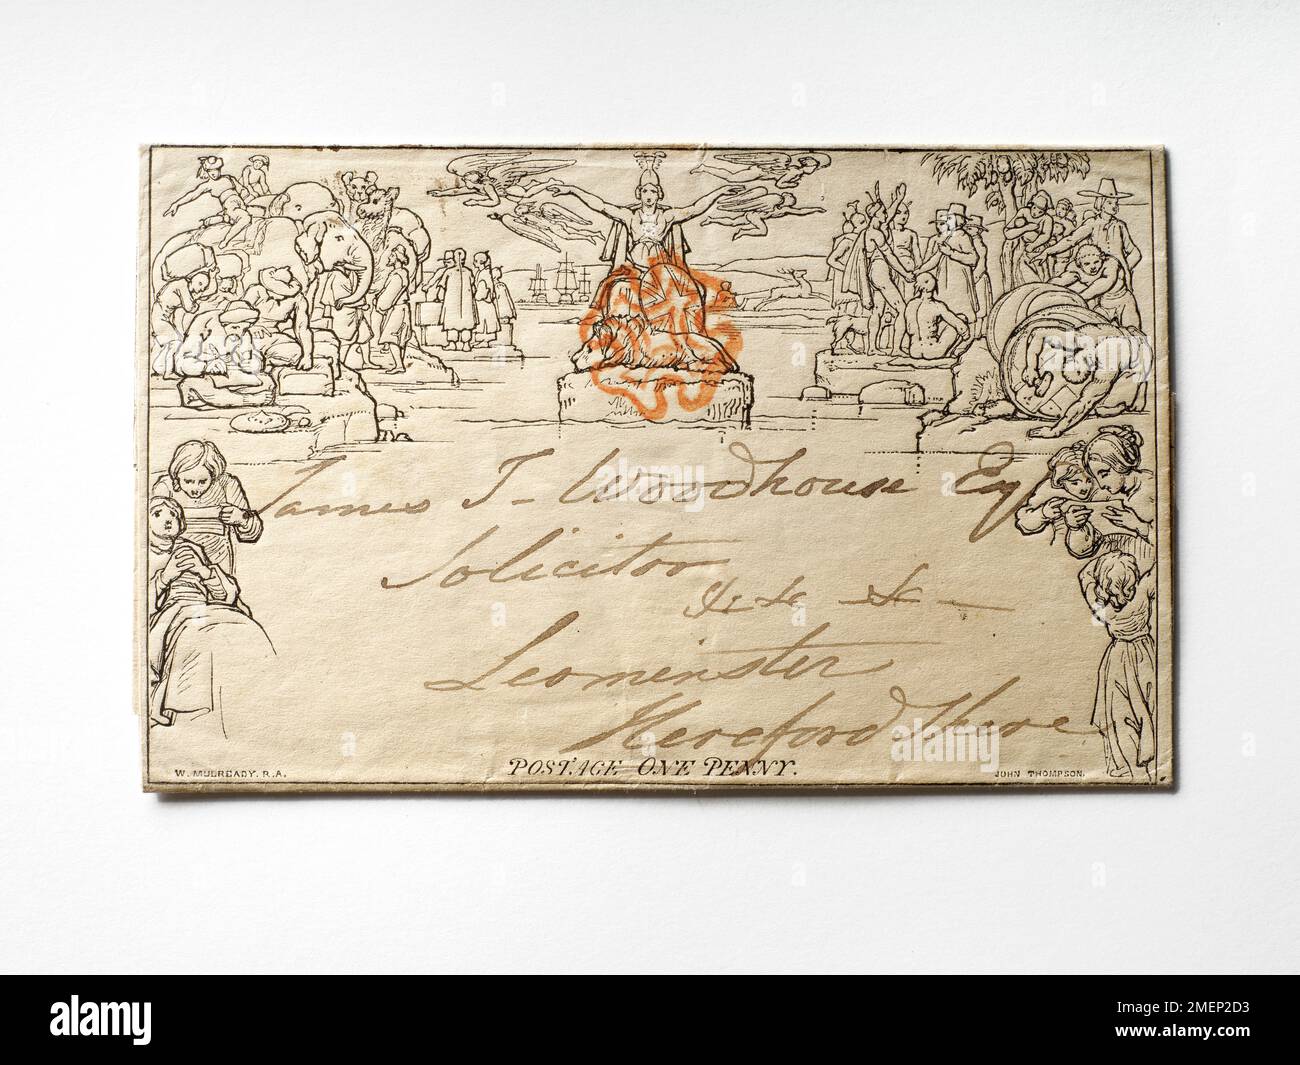 James T - Woodhouse Esq
Solicitor
&c &c &c
Leominster
Herefordshire
POSTAGE ONE PENNY.
W. MULREADY. R.A.
JOHN THOMPSON.
a
alamy
alamy
Image ID: 2MEP2D3
www.alamy.com